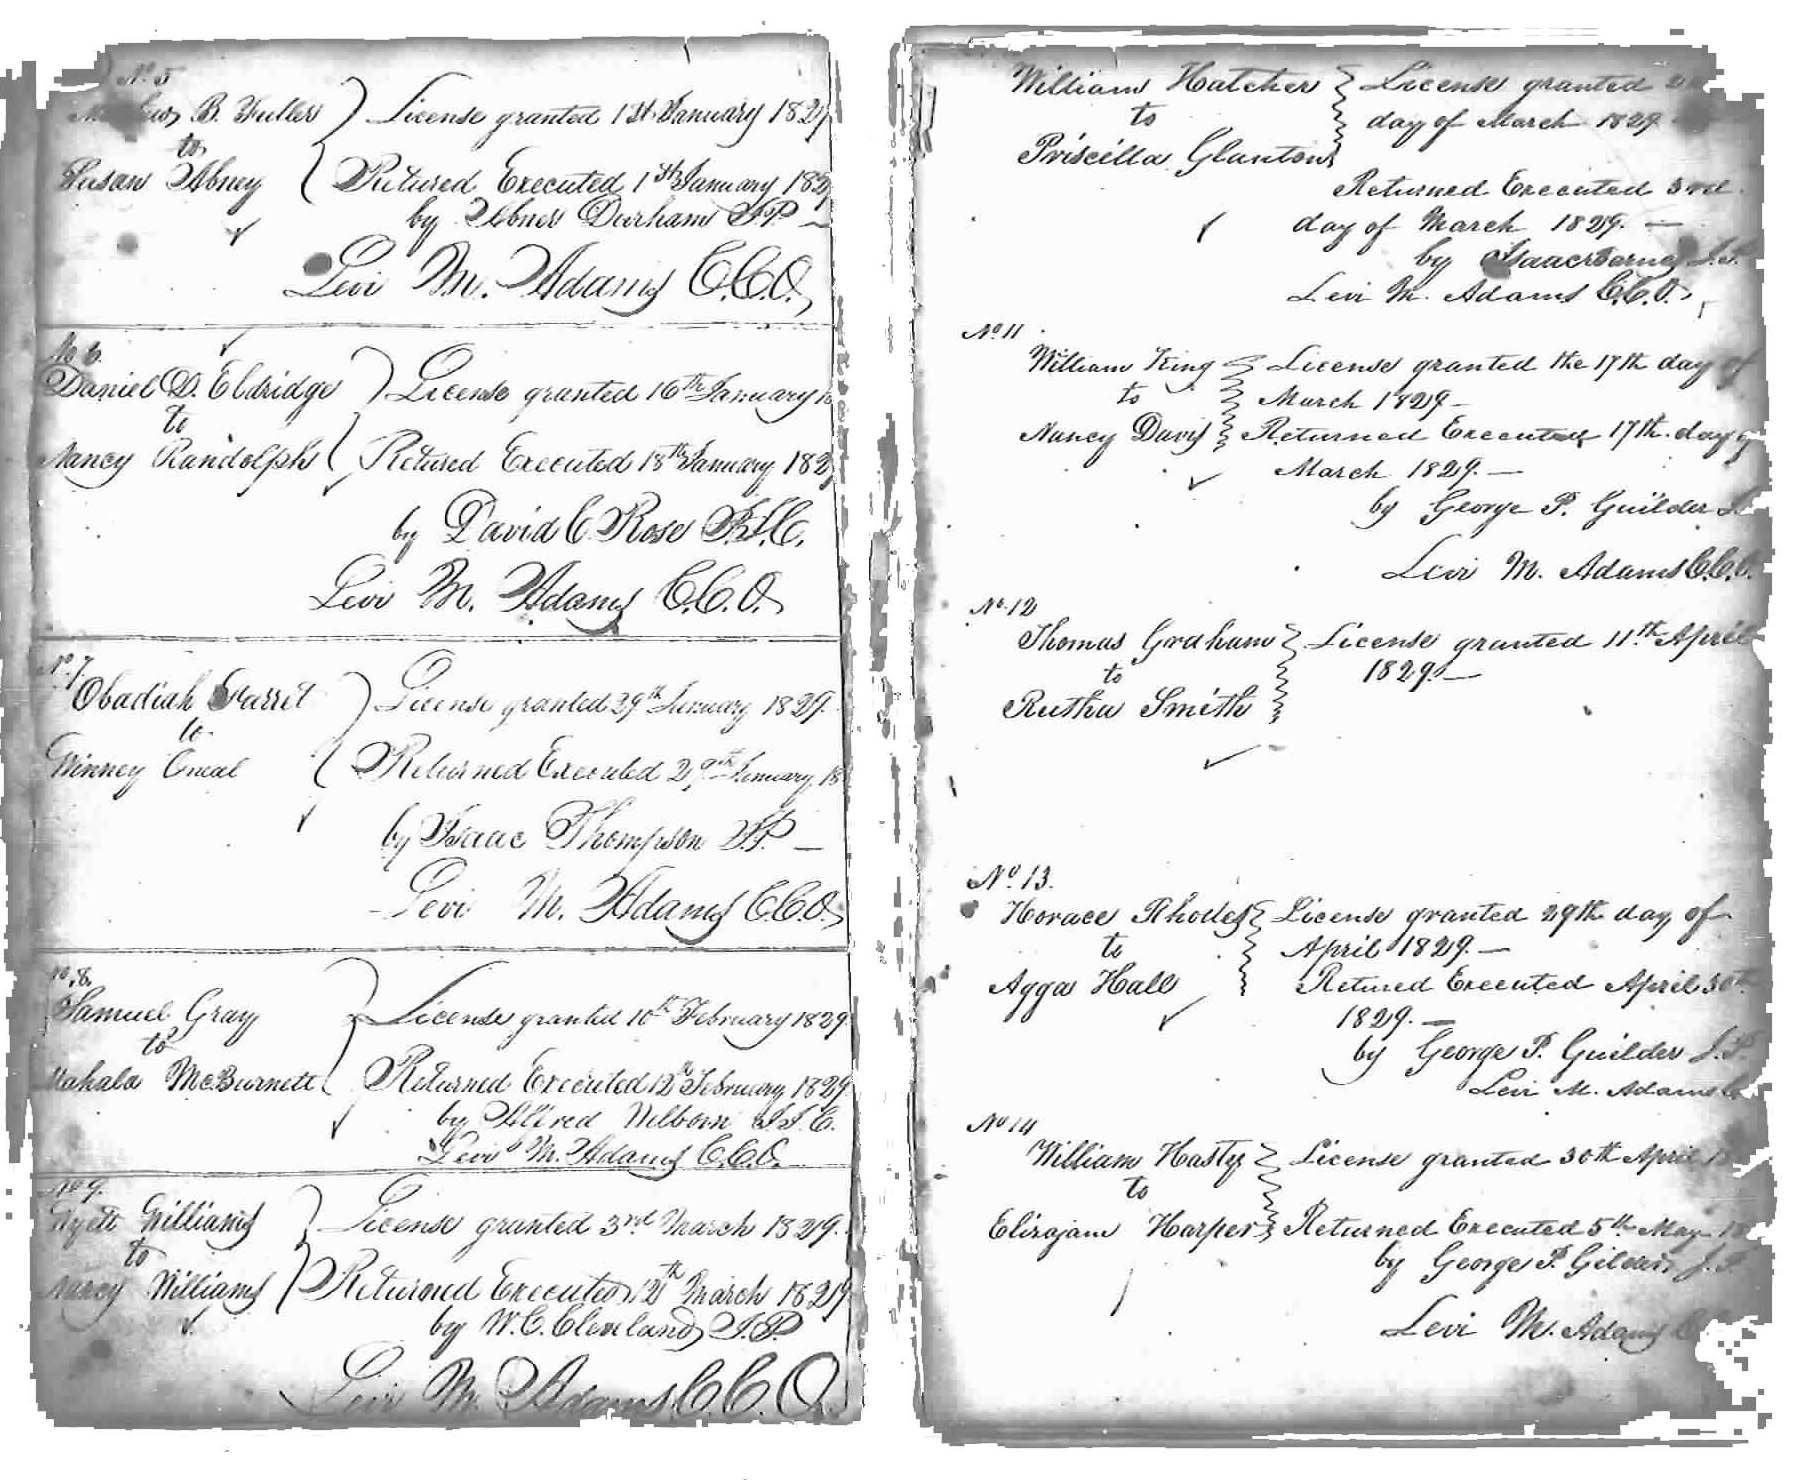 No. 5
B. Fuller License granted 1st January 1829
to
Susan Abney Retured Executed 1st January 182
by Abner Durham J.P.
Levi M. Adams C.C.O.
No 6.
Daniel D. Eldridge License granted 16th January
to
Nancy Randolph Retured Executed 18th January 182
by David C Rose J.I.C.
Levi M. Adams C.C.O.
No. 7.
Obadiah Garret License granted 29th January 1829.
to
Winney Oneal Returned Executed 29th January 18
by Isaac Thompson J.P.
Levi M. Adams C.C.O.
No. 8.
Samuel Gray License granted 10th February 1829
to
Mahala McBurnett Returned Executed 12th February 1829
by Alfred Welborn J.I.C.
Levi M. Adams C.C.O.
No 9.
Wyett Williams License granted 3rd March 1829.
to
Nancy Williams Returned Executed 12th March 1829
by W.C. Cleveland J.P.
Levi M. Adams C.C.O.
William Hatcher License granted 2
to day of March 1829
Priscilla Glanton
Returned Executed 3rd
day of March 1829. —
by Isaac J.P.
Levi M. Adams C.C.O.
No. 11
William King License granted the 17th day of
to March 1829 —
Nancy Davis Returned Executed 17th. day of
March 1829. —
by George P. Guilder J.
Levi M. Adams C.C.O.
No. 12
Thomas Graham License granted 11th April
to 1829. —
Rutha Smith
No. 13.
Horace Rhodes License granted 29th day of
to April 1829. —
Agga Hall Retured Executed April 30th
1829. —
by George P. Guilder J.P.
Levi M. Adams C
No 14
William Hasty License granted 30th April 18
to
Elizajane Harper Returned Executed 5th May 18
by George P. Gilder J.P.
Levi M. Adams C